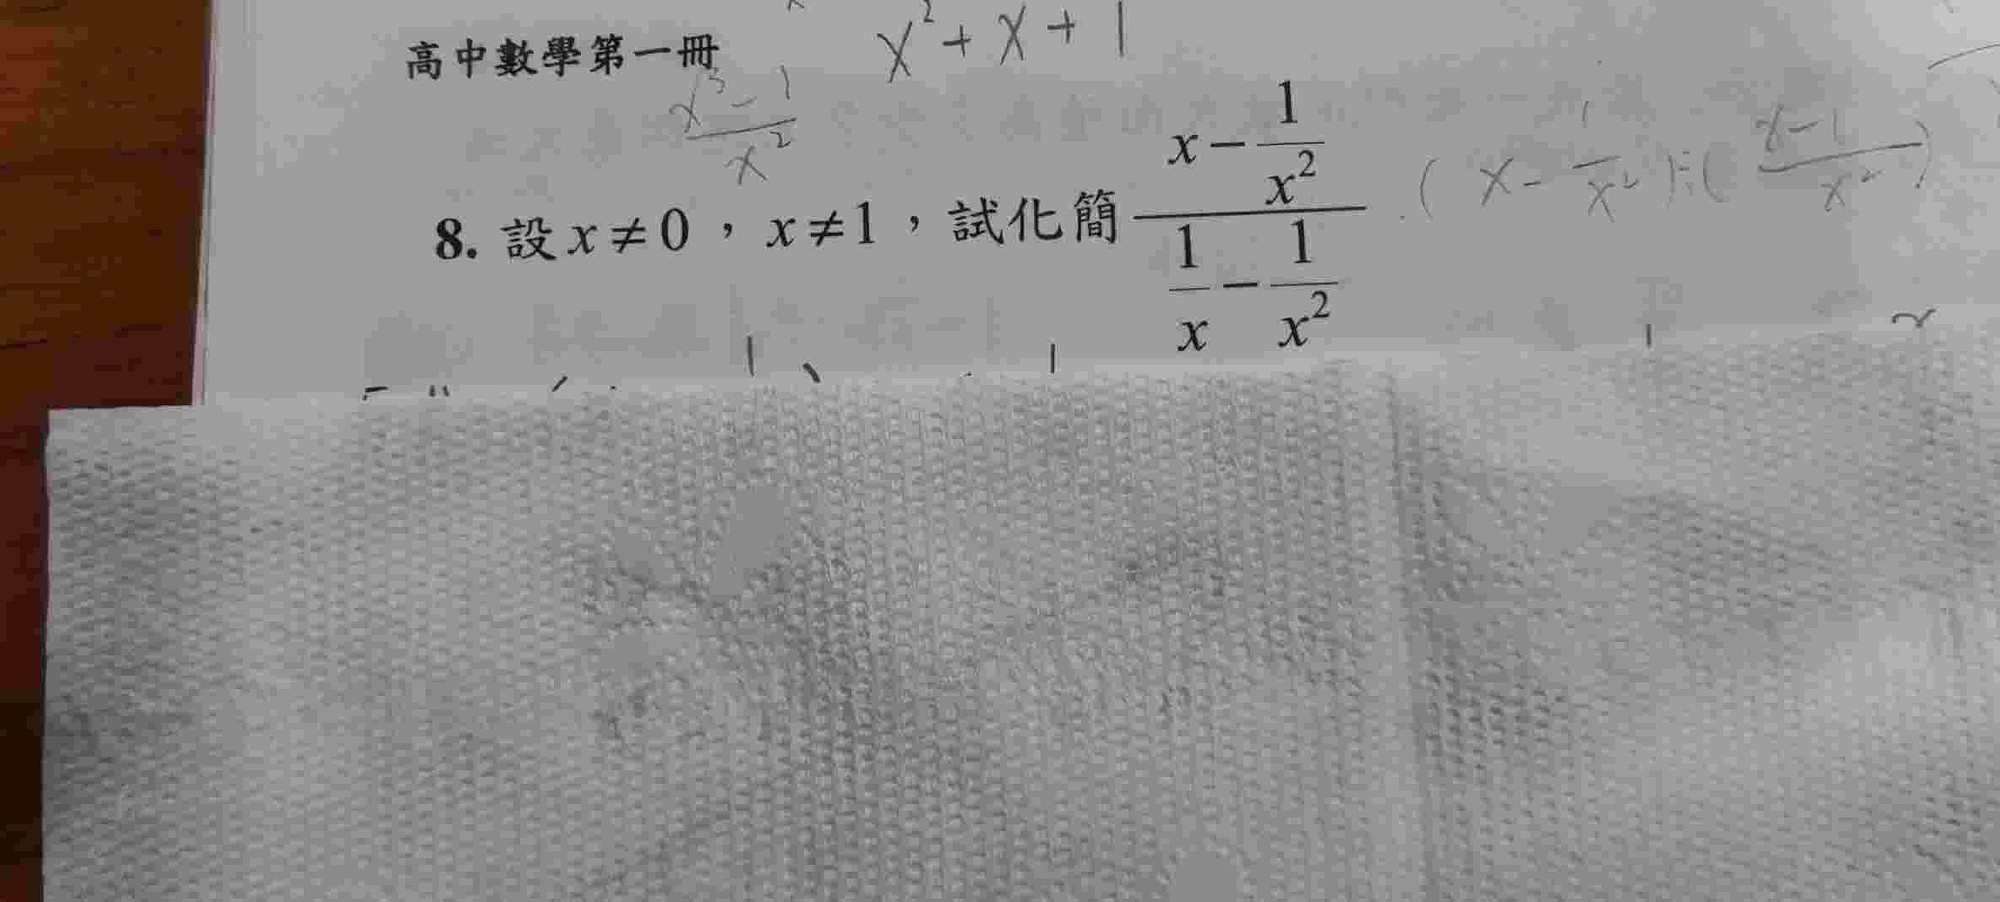 高中數學第一冊
x²+x+1
x³-1/x²
8. 設x≠0，x≠1，試化簡 (x-1/x²)/(1/x-1/x²)
(x-1/x²)÷(x-1/x²)